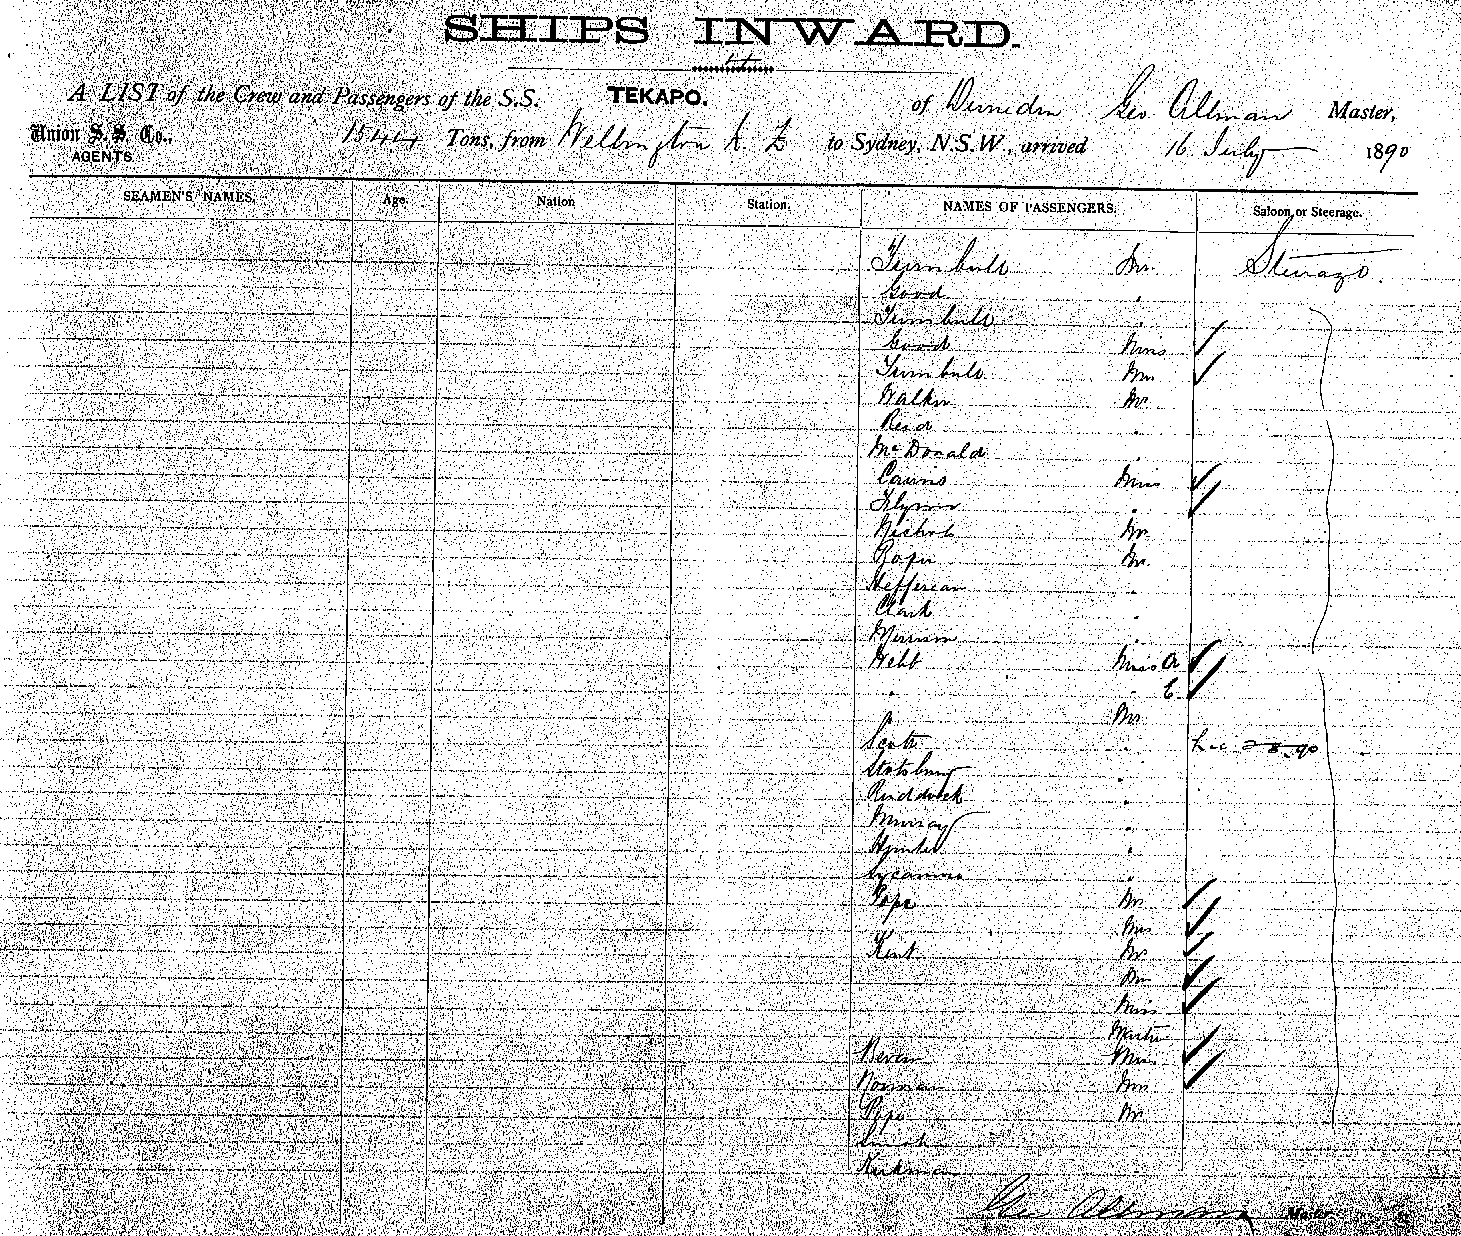 SHIPS INWARD.
A LIST of the Crew and Passengers of the S.S. TEKAPO. of Dunedin Geo Allman Master,
Union S.S. Co., AGENTS 1544 Tons, from Wellington N. Z to Sydney, N.S.W., arrived 16 July 1890
SEAMEN'S NAMES. Age. Nation Station. NAMES OF PASSENGERS. Saloon, or Steerage.
Turnbull Mr. Steerage.
Good "
Turnbull "
Good Miss ✓
Turnbull Mrs ✓
Walker Mr
Reid "
McDonald "
Cairns Miss ✓
Flynn " ✓
Nichols Mr
Roper Mr.
Hefferean "
Clark "
Morrison "
Webb Miss a ✓
" " ✓
" Mr
Scott "
"
Ruddock "
Murray "
Hunter "
"
Pope Mr ✓
Mrs ✓
Kent Mr ✓
✓
Miss ✓
Master
Bevan Miss ✓
Norman Mrs ✓
Pope Mr
Smith
Kirkman
Geo Allman Master